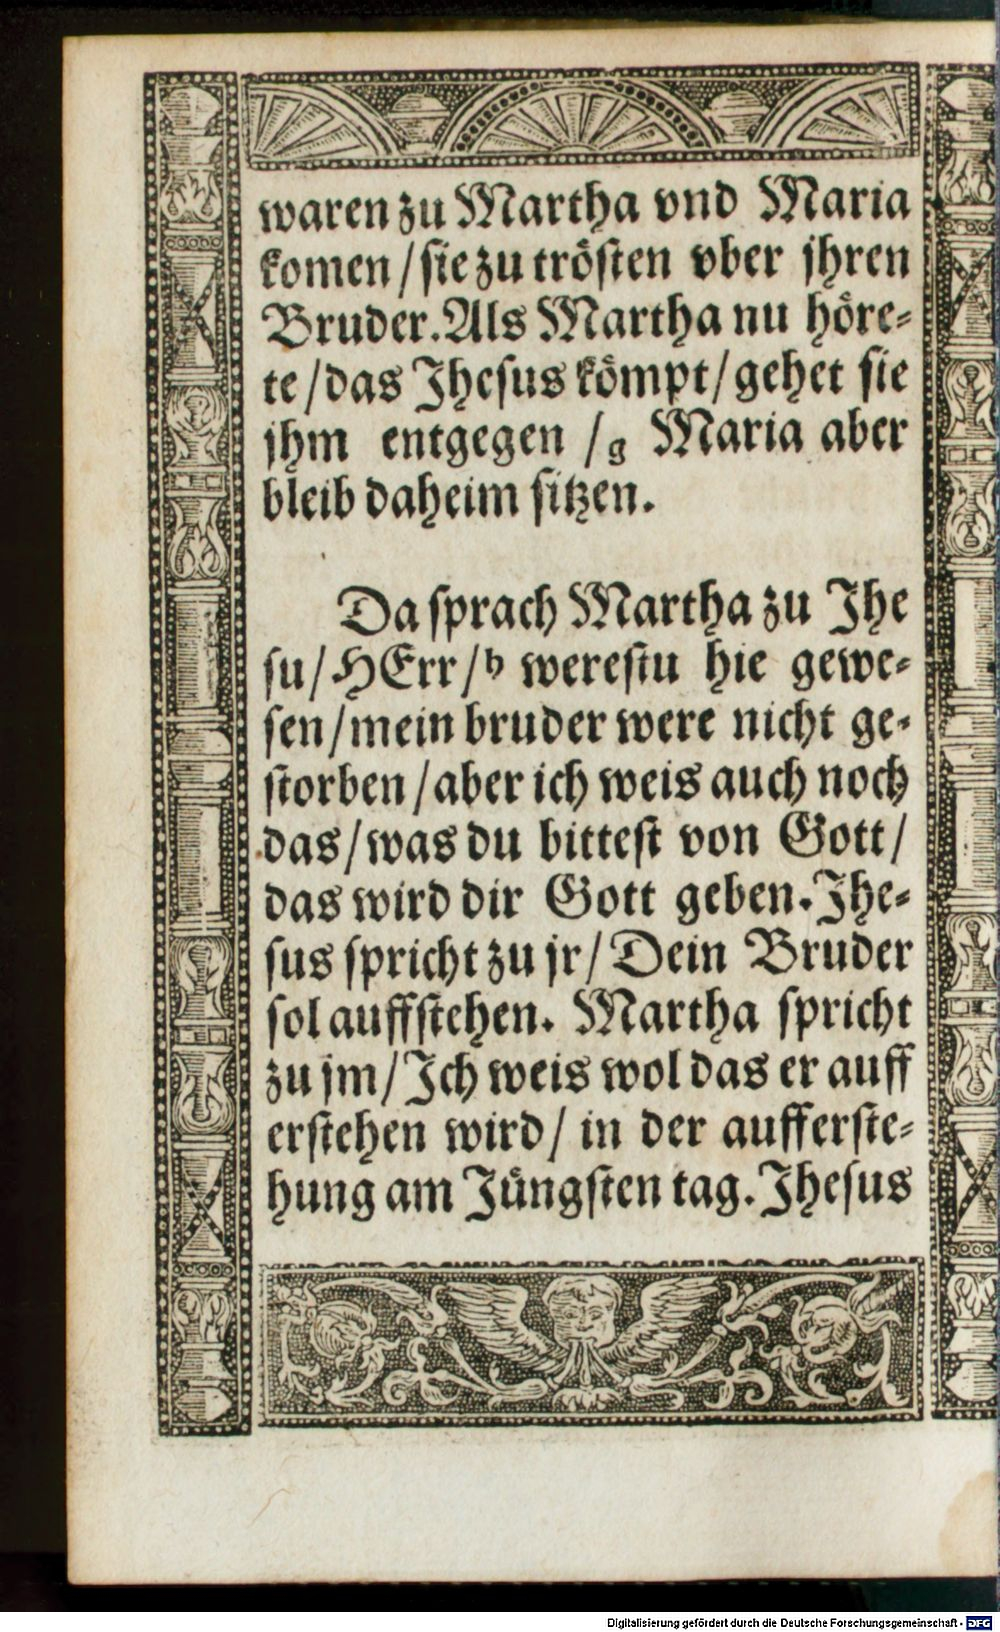 waren zu Martha vnd Maria
komen / sie zu trösten vber jhren
Bruder. Als Martha nu höre-
te / das Jhesus kömpt / gehet sie
jhm entgegen / g Maria aber
bleib daheim sitzen.
Da sprach Martha zu Jhe
su / HErr / h werestu hie gewe-
sen / mein bruder were nicht ge-
storben / aber ich weis auch noch
das / was du bittest von Gott /
das wird dir Gott geben. Jhe-
sus spricht zu jr / Dein Bruder
sol auffstehen. Martha spricht
zu jm / Jch weis wol das er auff
erstehen wird / in der aufferste-
hung am Jüngsten tag. Jhesus
Digitalisierung gefördert durch die Deutsche Forschungsgemeinschaft - DFG